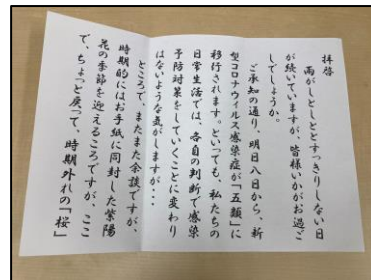 拝啓
雨がしとしととすっきりしない日
が続いていますが、皆様いかがお過ご
しでしょうか。
ご承知の通り、明日八日から、新
型コロナウィルス感染症が「五類」に
移行されます。といっても、私たちの
日常生活では、各自の判断で感染
予防対策をしていくことに変わり
はないような気がしますが・・・
ところで、またまた余談ですが、
時期的にはお手紙に同封した紫陽
花の季節を迎えるころですが、ここ
で、ちょっと戻って、時期外れの「桜」